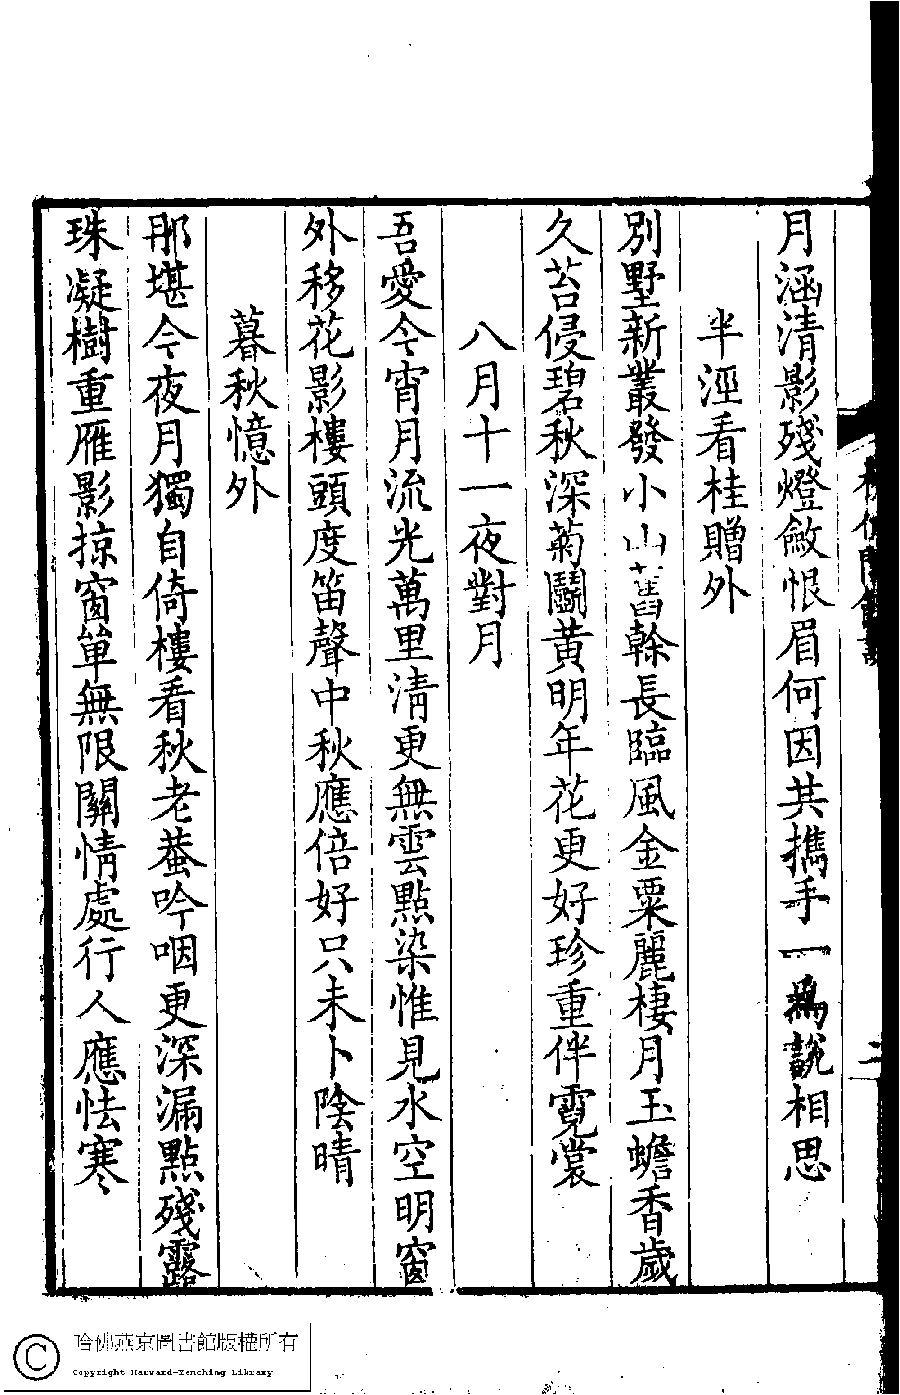 月涵清影殘燈斂恨眉何因共攜手一為說相思
半涇看桂贈外
別墅新叢發小山舊幹長臨風金粟麗棲月玉蟾香歲
久苔侵碧秋深菊鬭黃明年花更好珍重伴霓裳
八月十一夜對月
吾愛今宵月流光萬里清更無雲點染惟見水空明窗
外移花影樓頭度笛聲中秋應倍好只未卜陰晴
暮秋憶外
那堪今夜月獨自倚樓看秋老蛩吟咽更深漏點殘露
珠凝樹重雁影掠窗單無限關情處行人應怯寒
二
哈佛燕京圖書館版權所有
Copyright Harvard-Yenching Library